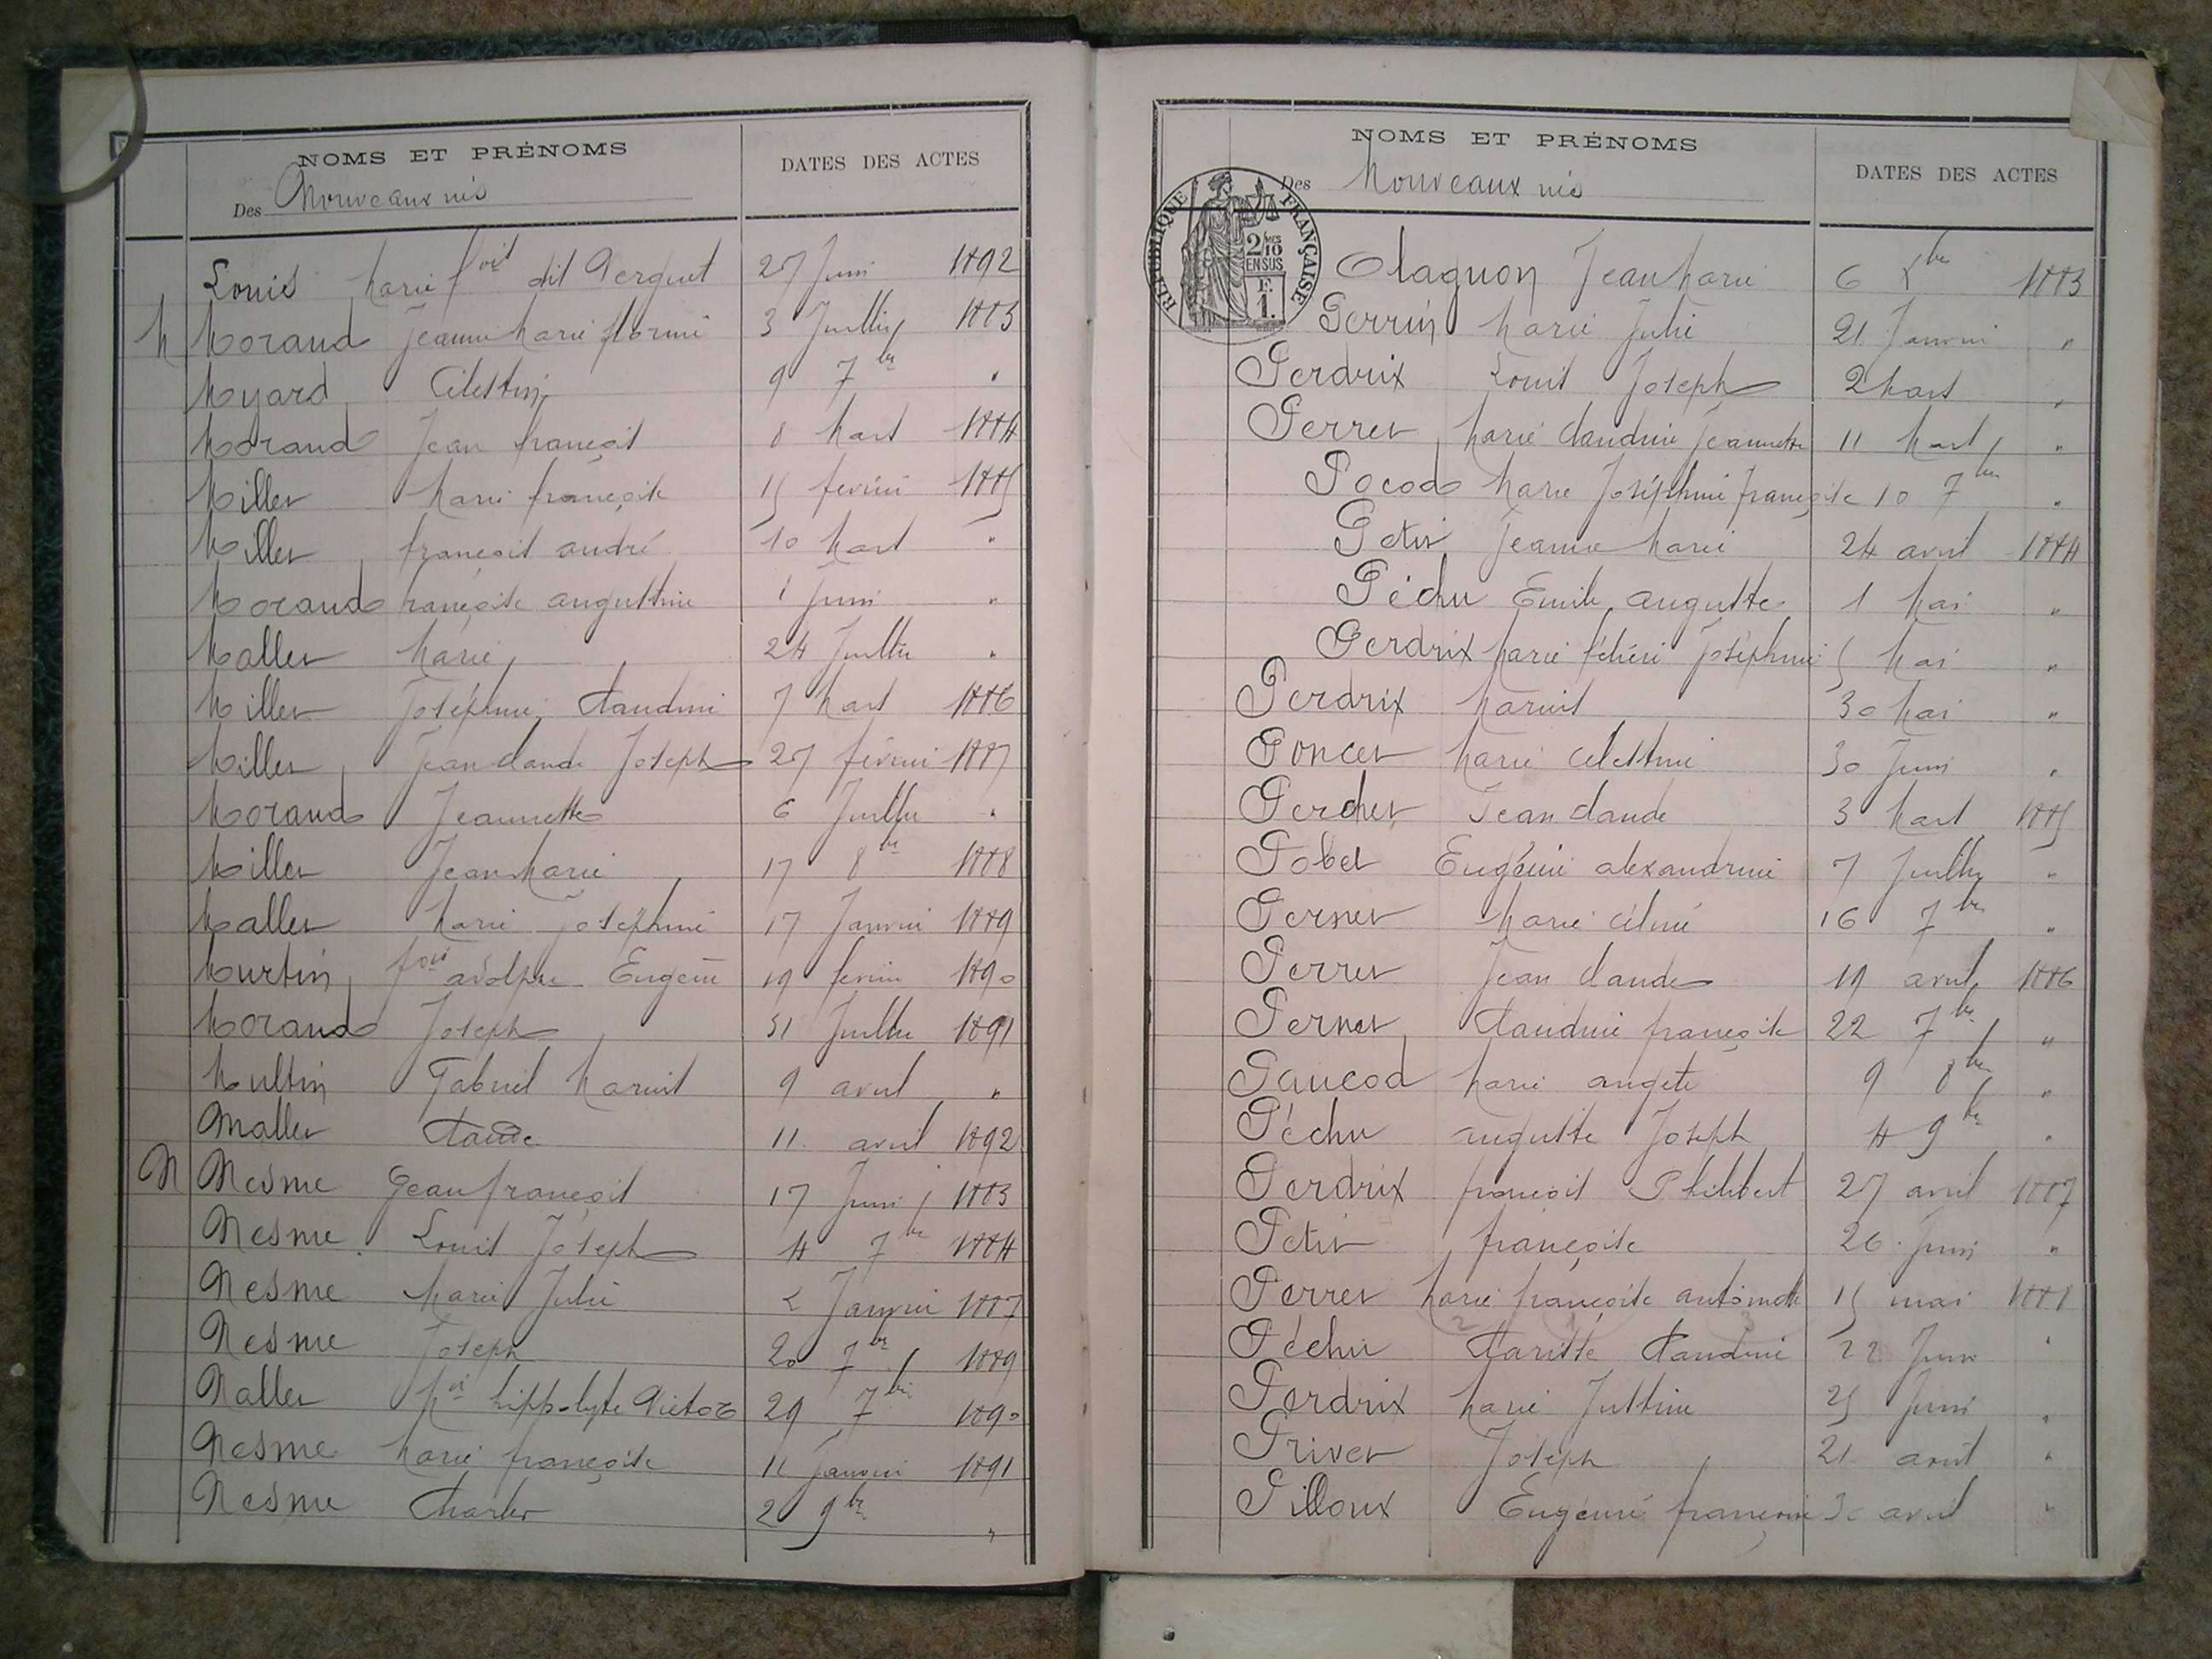 NOMS ET PRÉNOMS
DATES DES ACTES
Des Nouveaux nés
Louis Marie fois dit Perguet 25 Juin 1892
M Morand Jeanne Marie 3 Juillet 1883
Myard Célestin 9 7bre "
Morand Jean françois 8 Mars 1884
Millet Marie françoise 15 février 1885
Millet françois andré 10 Mars "
Morand françoise augustine 1 Juin "
Mallet Marie 24 Juillet "
Millet Joséphine Claudine 7 Mars 1886
Millet Jean Claude Joseph 25 février 1887
Morand Jeannette 6 Juillet "
Millet Jean Marie 17 8bre 1888
Mallet Marie Joséphine 17 Janvier 1889
Murtin fois adolphe Eugène 19 février 1890
Morand Joseph 31 Juillet 1891
Multin Gabriel Marius 9 avril "
Mallet Claude 11 avril 1892
N Nesme Jean françois 17 Juin 1883
Nesme Louis Joseph 4 7bre 1884
Nesme Marie Julie 2 Janvier 1887
Nesme Joseph 20 7bre 1889
Nallet Mie hippolyte Victor 29 7bre 1890
Nesme Marie françoise 11 Janvier 1891
Nesme Charles 2 9bre "
NOMS ET PRÉNOMS
DATES DES ACTES
Des Nouveaux nés
RÉPUBLIQUE FRANÇAISE
2/10 EN SUS
F. 1.
Olagnon Jean Marie 6 Xbre 1883
Perrin Marie Julie 21 Janvier "
Perdrix Louis Joseph 2 Mars "
Perret Marie Claudine Jeannette 11 Mars "
Pocod Marie Joséphine françoise 10 7bre "
Petit Jeanne Marie 24 avril 1884
Péchu Emile auguste 1 Mai "
Perdrix Marie Joséphine 5 Mai "
Perdrix Marius 30 Mai "
Poncet Marie Célestine 30 Juin "
Perchet Jean Claude 3 Mars 1885
Pobet Eugénie alexandrine 7 Juillet "
Pernet Marie 16 7bre "
Perret Jean Claude 19 avril 1886
Pernet Claudine françoise 22 7bre "
Paucod Marie angèle 9 8bre "
Péchu auguste Joseph 4 9bre "
Perdrix françois Philibert 25 avril 1887
Petit françoise 26 Juin "
Perret Marie françoise antoinette 15 mai 1888
Péchu Clarisse Claudine 22 Juin "
Perdrix Marie Justine 25 Juin "
Privet Joseph 21 août "
Pilloux Eugénie françoise 30 avril "